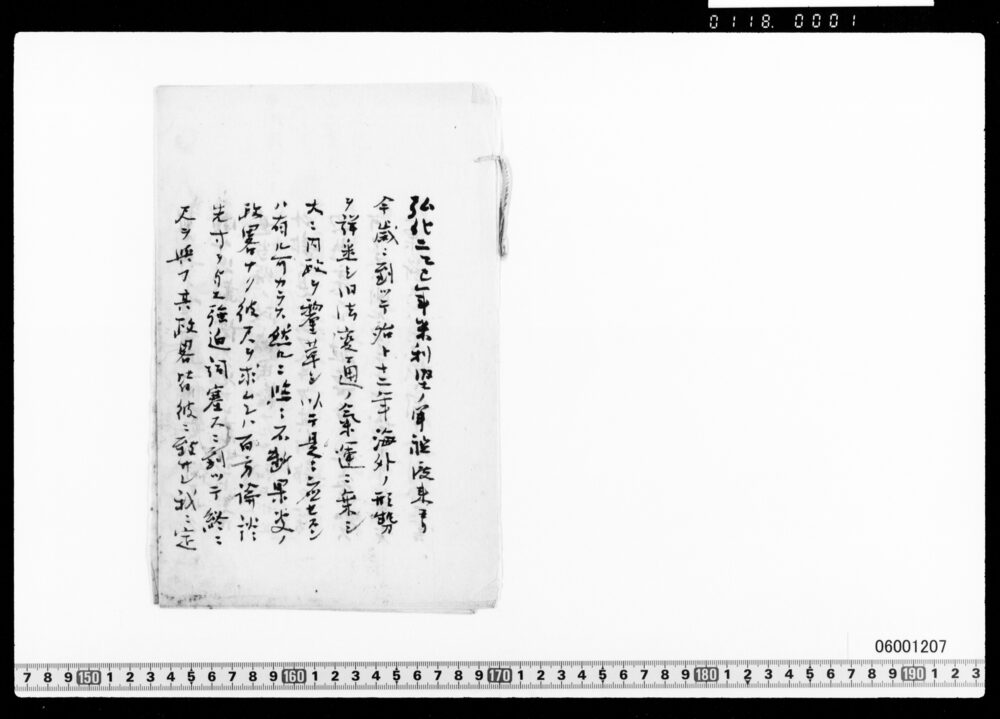 0118. 0001
弘化二乙巳年米利堅ノ軍艦渡来ヨリ
今歳ニ到ツテ殆ト十二年海外ノ形勢
ヲ詳悉シ旧法変通ノ氣運ニ乗シ
大ニ内政ヲ釐革シ以テ是ニ應セスン
ハ有ル可カラス然ルニ區々不断果受ノ
政畧ナリ彼尺ヲ求ムレハ百方論談シ
先寸ヲ与エ強迫詞塞スニ到ツテ終ニ
尺ヲ與フ其政畧皆彼ニ敵サレ我ニ定
06001207
7 8 9 150 1 2 3 4 5 6 7 8 9 160 1 2 3 4 5 6 7 8 9 170 1 2 3 4 5 6 7 8 9 180 1 2 3 4 5 6 7 8 9 190 1 2 3